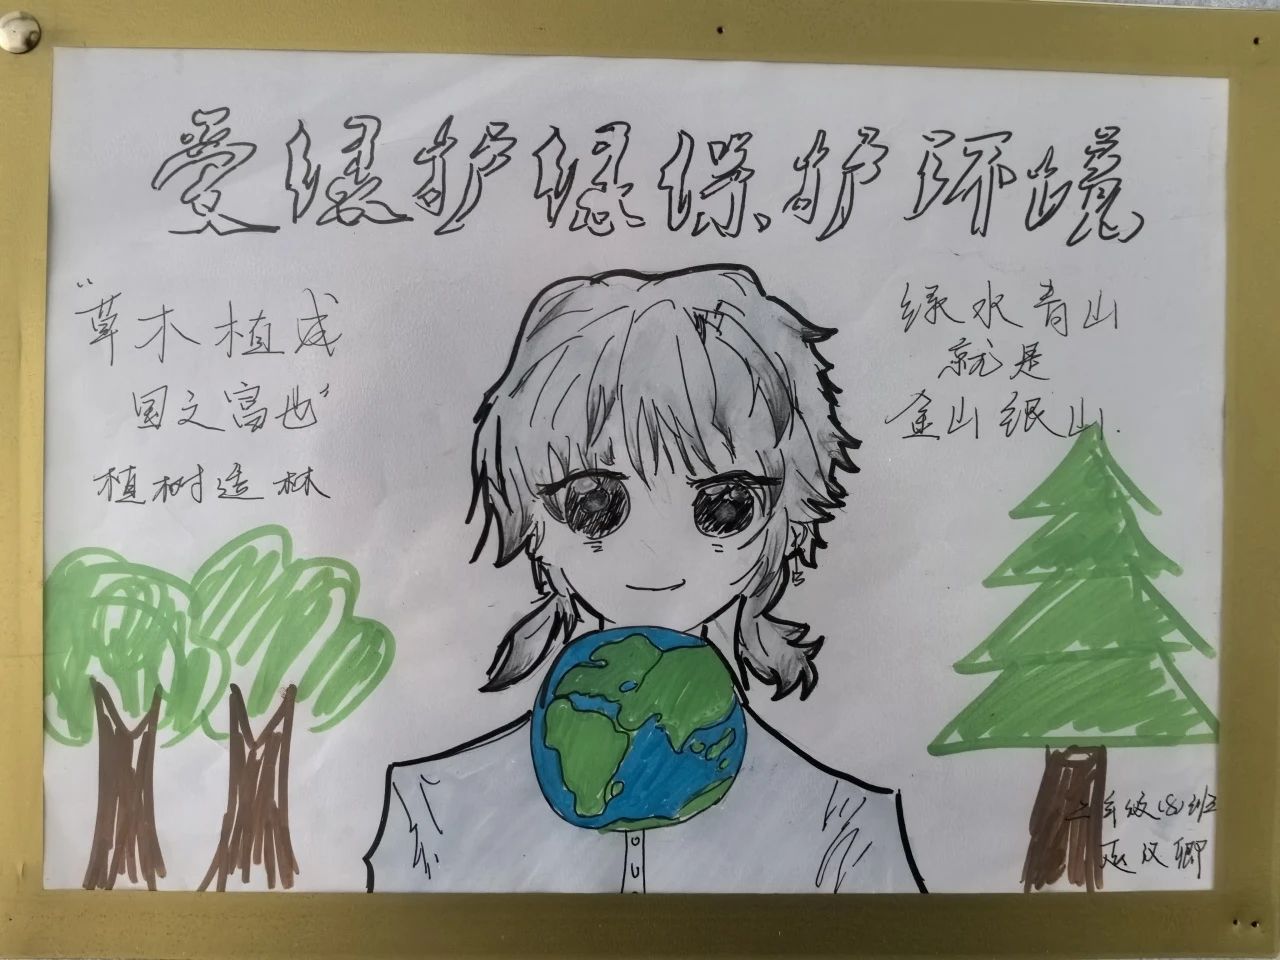 爱绿护绿保护环境
“草木植成
国之富也”
植树造林
绿水青山
就是
金山银山.
二年级(8)班
巫汉卿